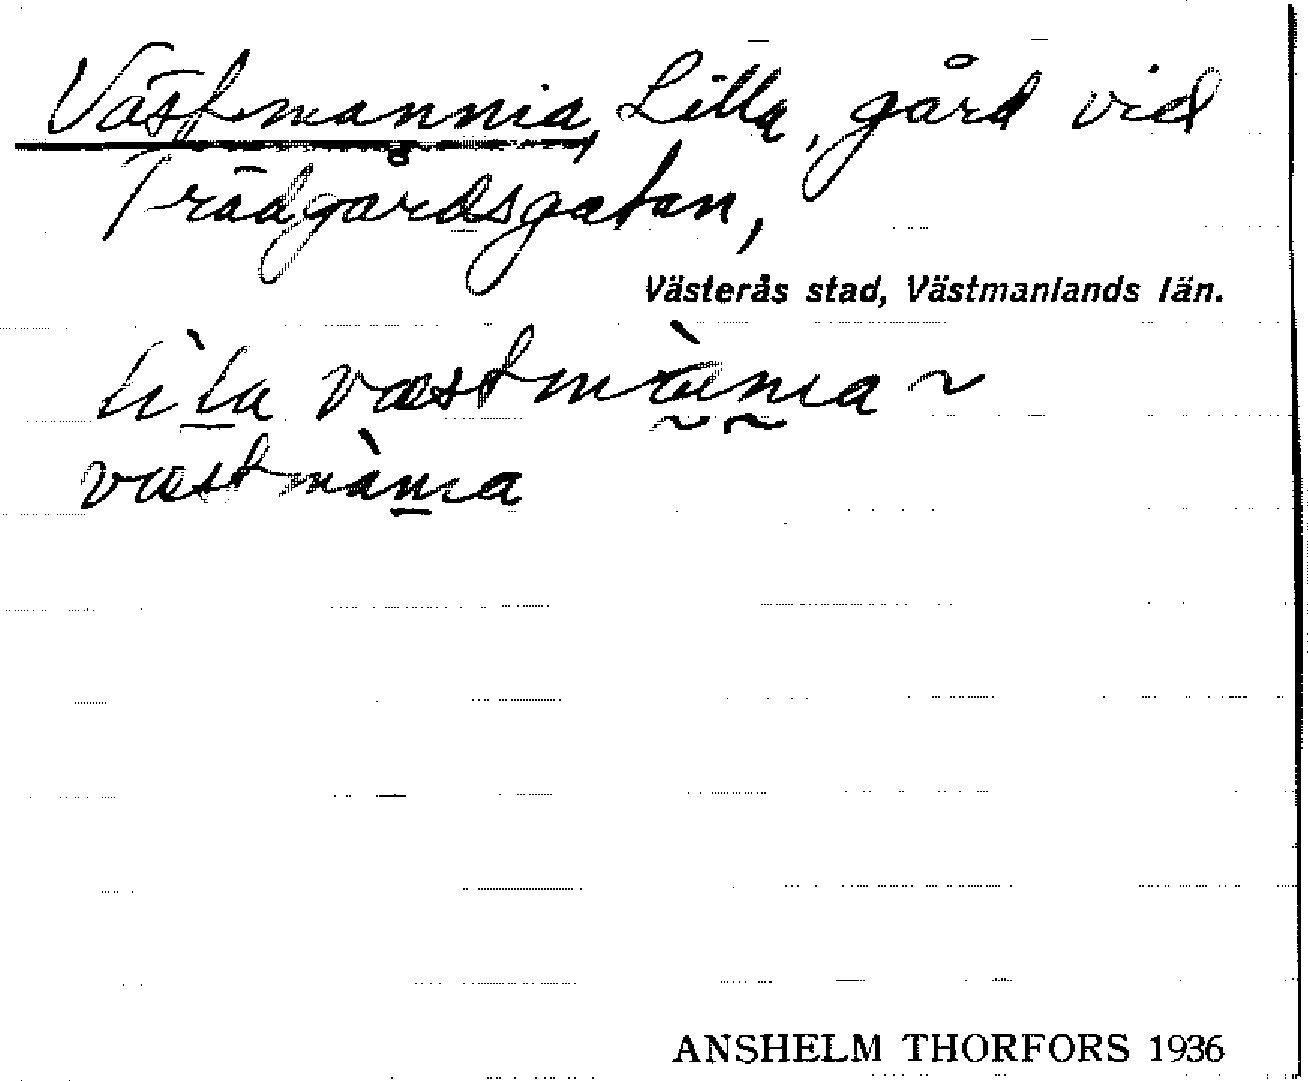 Västmannia, Lilla, gård vid
Trädgårdsgatan,
Västerås stad, Västmanlands län.
lìl̲a væstmàn̰ia ~
væstmàn̲ia
ANSHELM THORFORS 1936